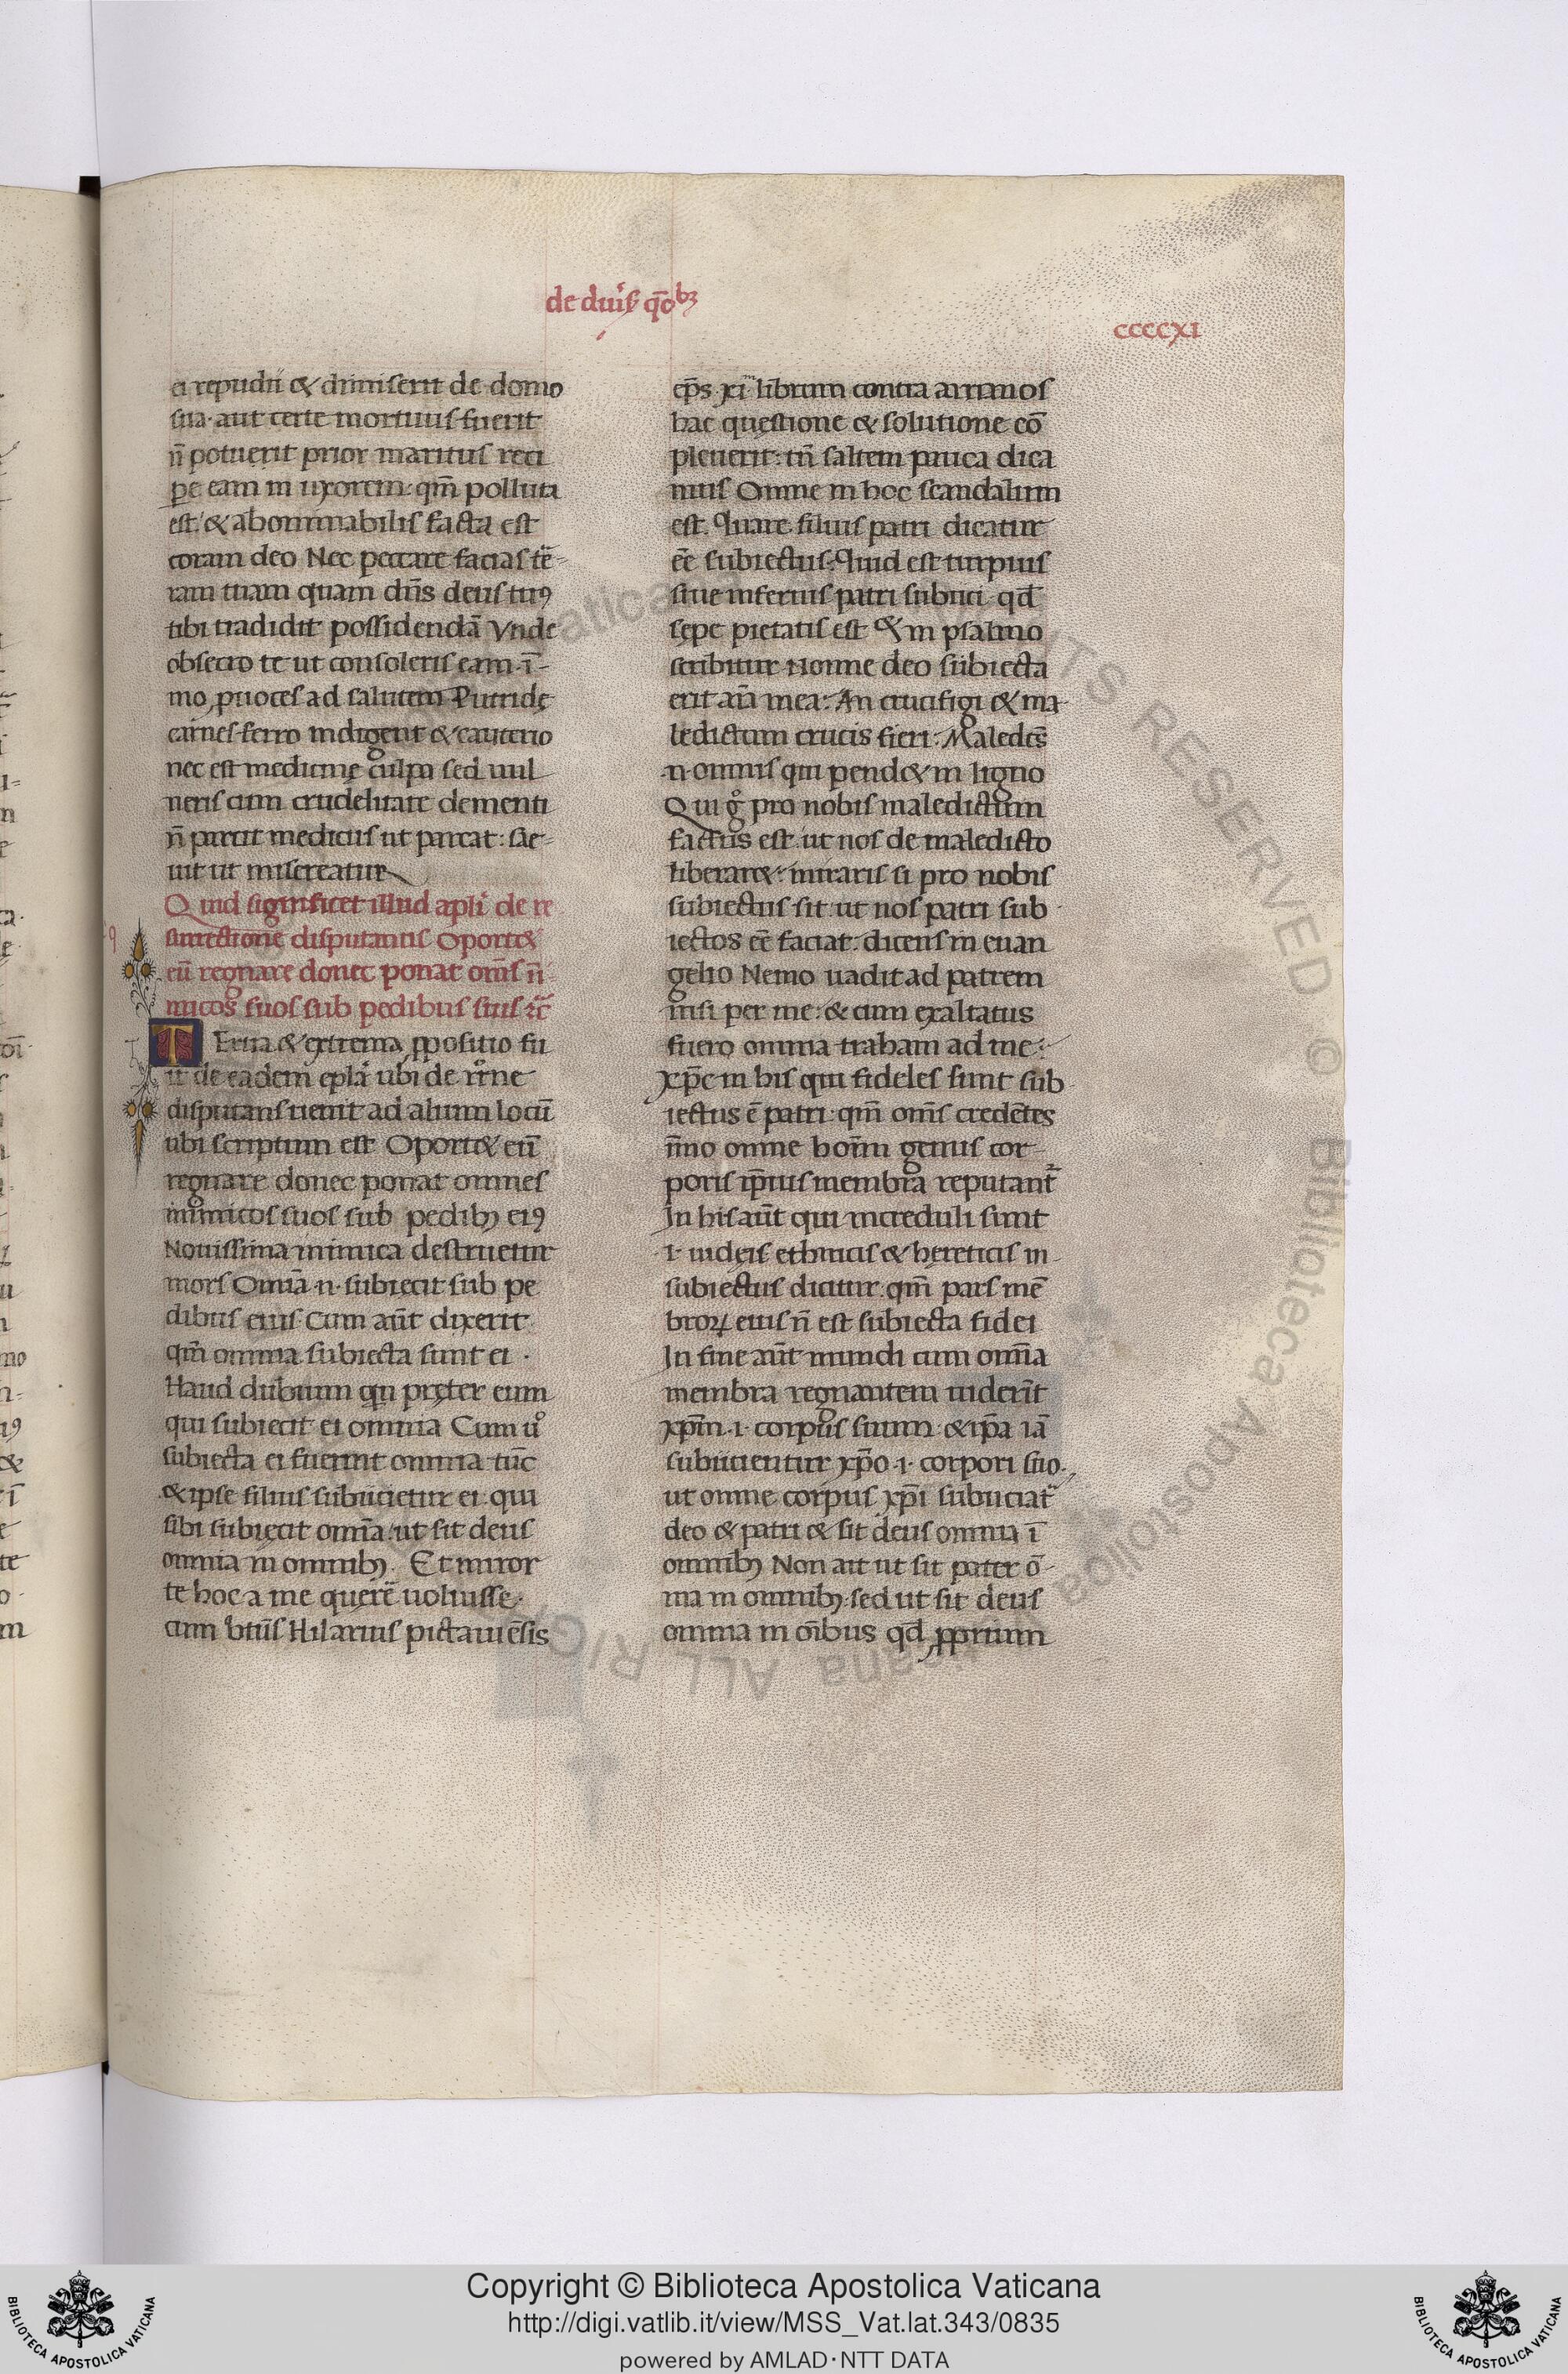 de diuisˀ qōbꝫ
ccccxi
ei repudii & dimiserit de domo
sua. aut certe mortuus fuerit
n̄ potuerit prior maritus reci
ꝑe eam in uxorem. qm̄ polluta
est. & abominabilis facta est
coram deo Nec peccare facias t̄e-
ram tuam quam dn̄s deus tuꝰ
tibi tradidit possidendā Vnde
obsecro te ut consoleris eam. ī-
mo ꝓuoces ad salutem Putridę
carnes ferro indigent & cauterio
nec est medicinę culpa sed uul
neris cum crudelitate clementi
n̄ parcit medicus ut parcat: sae-
uit ut misereatur
Quid significet illud apl̄i de re
surrectione disputantis Oport&
eū regnare donec ponat om̄s īn
micos suos sub pedibus suis ⁊c̄
TErtia & extrema ꝓpositio fu
it de eadem epl̄a ubi de rr̄ne
disputans uenit ad alium locū
ubi scriptum est Oport& eū
regnare donec ponat omnes
inimicos suos sub pedibꝫ eiꝰ
Nouissima inimica destruetur
mors Omīa .n. subiecit sub pe
dibus eius Cum aūt dixerit
qm̄ omnia subiecta sunt ei .
Haud dubium qn̄ pręter eum
qui subiecit ei omnia Cum ů
subiecta ei fuerint omnia tūc
& ipse filius subiicietur ei. qui
sibi subiecit omīa: ut sit deus
omnia in omnibꝫ. Et miror
te hoc a me querē uoluisse.
cum btūs Hilarius pictauēsis
ep̄s xi librum contra arrianos
hac questione & solutione cō
pleuerit: tn̄ saltem pauca dica
mus Omne in hoc scandalum
est. Quare filius patri dicatur
ēe subiectus: Quid est turpius
siue inferius patri subiici. qd̄
sępe pietatis est & in psalmo
scribitur Nonne deo subiecta
erit aīa mea: An crucifigi & ma-
ledictum crucis fieri: Maledc̄s
.n. omnis qui pend& in ligno
Qui g̊ pro nobis maledictum
factus est. ut nos de maledicto
liberar&: miraris si pro nobis
subiectus sit. ut nos patri sub
iectos ēe faciat: dicens in euan
gelio Nemo uadit ad patrem
nisi per me: & cum exaltatus
fuero omnia traham ad me:
xp̄c in his qui fideles sunt sub
iectus ē patri: qm̄ om̄s credētes
īmo omne hoīm genus cor-
poris ip̄ius membra reputant᷑
In his aūt qui increduli sunt
.i. iudęis ethnicis & hereticis in-
subiectus dicitur. qm̄ pars mē
broꝝ eius n̄ est subiecta fidei
In fine aūt mundi cum omīa
membra regnantem uiderīt
xp̄m .i. corpus suum. & ip̄a iā
subiicientur xp̄o .i. corpori suo.
ut omne corpus xp̄i subiiciat᷑
deo & patri & sit deus omnia ī
omnibꝫ Non ait ut sit pater ō-
nia in omnibꝫ: sed ut sit deus
omnia in oībus qd̄ ꝓprium
ALL RIGHTS RESERVED © Biblioteca Apostolica Vaticana
Copyright © Biblioteca Apostolica Vaticana
http://digi.vatlib.it/view/MSS_Vat.lat.343/0835
powered by AMLAD·NTT DATA
BIBLIOTECA APOSTOLICA VATICANA
BIBLIOTECA APOSTOLICA VATICANA